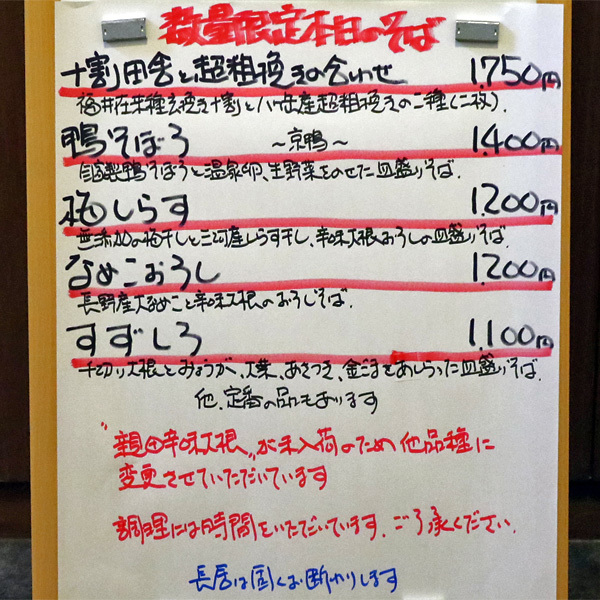 数量限定本日のそば
十割田舎と超粗挽きの合いせ 1,750円
福井在来種玄挽き十割と八ヶ岳産超粗挽きの二種(二枚).
鴨そぼろ ~京鴨~ 1,400円
自家製鴨そぼろと温泉卵、生野菜をのせた皿盛りそば.
梅しらす 1,200円
無添加の梅干しと三河産しらす干し、辛味大根おろしの皿盛りそば.
なめこおろし 1,200円
長野産大なめこと辛味大根のおろしそば.
すずしろ 1,100円
千切り大根とみょうが、大葉、あさつき、金ごまをあしらった皿盛りそば.
他、定番の品もあります
"親田辛味大根"が未入荷のため他品種に
変更させていただいています
調理には時間をいただいています.ご了承ください.
長居は固くお断わりします